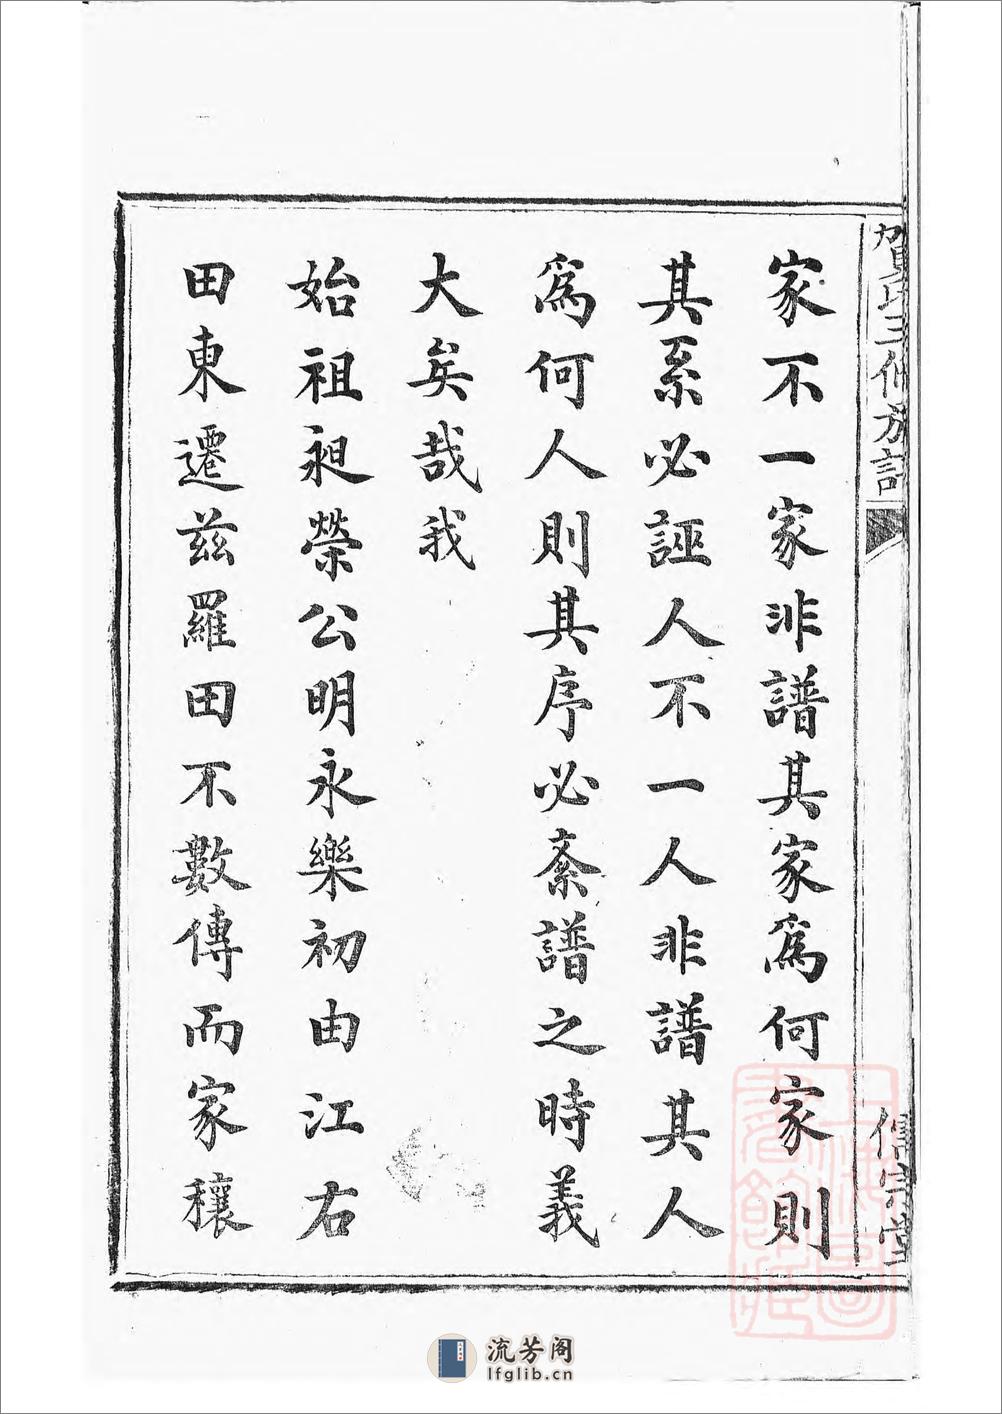 賀氏三修族譜
家不一家非譜其家爲何家則
其系必誣人不一人非譜其人
爲何人則其序必紊譜之時義
大矣哉我
始祖昶榮公明永樂初由江右
田東遷兹羅田不數傳而家穰
流芳阁
lfglib.cn